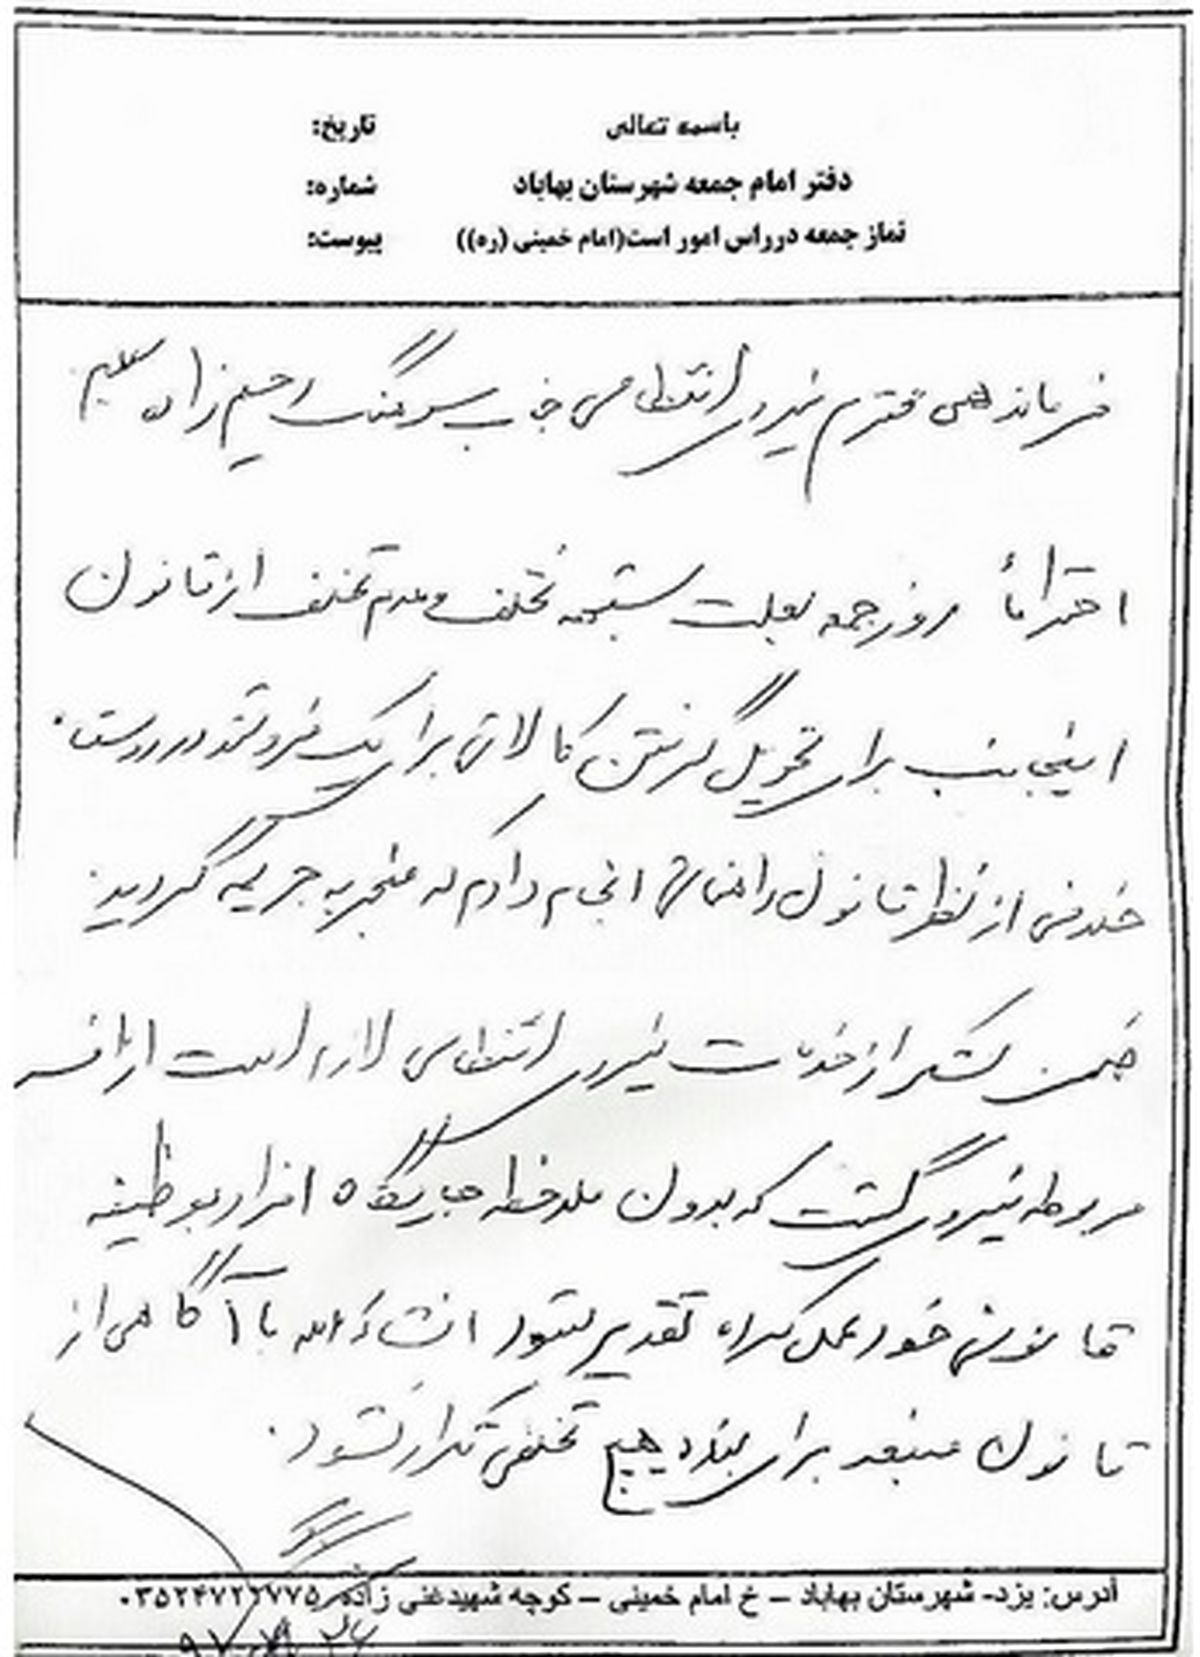 باسمه تعالی
دفتر امام جمعه شهرستان بهاباد
نماز جمعه درراس امور است(امام خمینی (ره))
تاریخ:
شماره:
پیوست:
فرماندهی محترم نیروی انتظامی جناب سرهنگ رحیم زاده
احتراماً روز جمعه بعلت شبهه تخلف و عدم تخلف از قانون
اینجانب برای تحویل گرفتن کالائی برای یک فروشنده در روستا
خلافی از نظر قانون راهنمائی انجام دادم که منجر به جریمه گردید
ضمن تشکر از خدمات نیروی انتظامی لازم است از افسر
مربوطه نیروی گشت که بدون ملاحظه جایگاه افراد بوظیفه
قانونی خود عمل کرده تقدیر بشود انشاءالله با آگاهی از
قانون منبعد برای بنده هیچ تخلفی تکرار نشود.
آدرس: یزد- شهرستان بهاباد – خ امام خمینی – کوچه شهیدغنی زاده